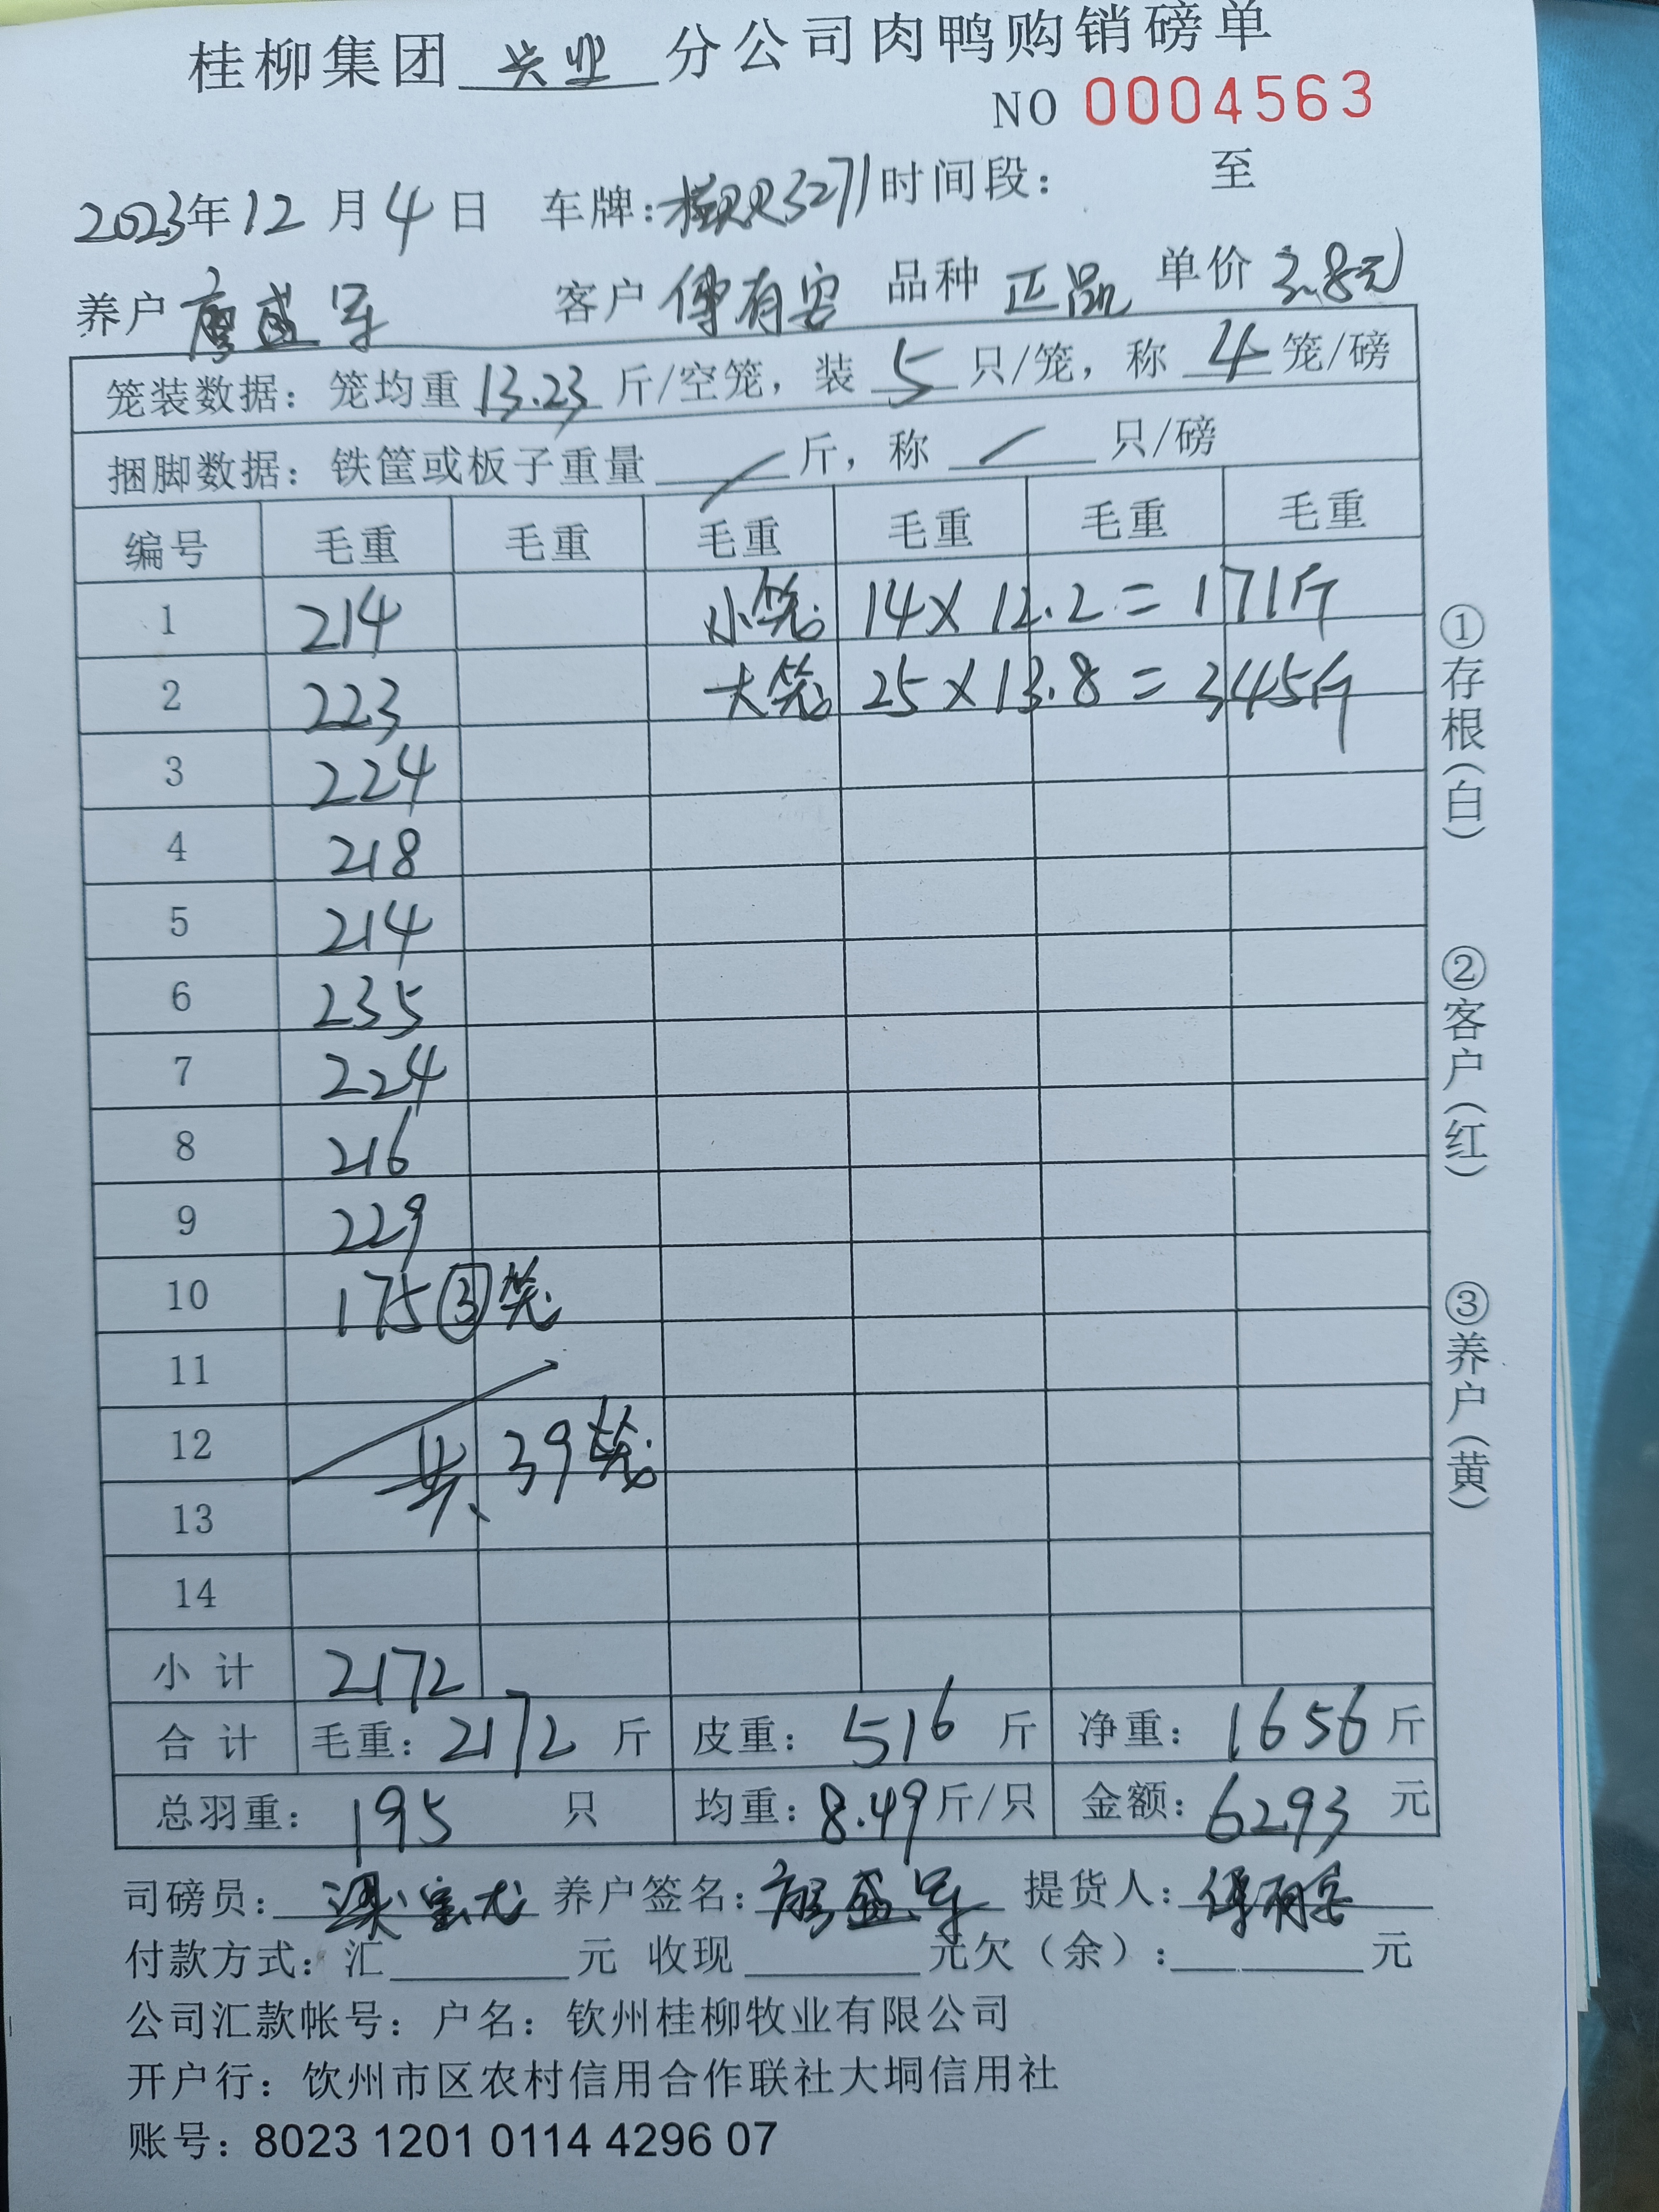 桂柳集团 兴业 分公司肉鸭购销磅单
NO 0004563
2023年12月4日 车牌:桂 3271 时间段: 至
养户 廖盛军 客户 傅有容 品种 正品 单价 3.8元
笼装数据: 笼均重 13.23 斤/空笼, 装 5 只/笼, 称 4 笼/磅
捆脚数据: 铁筐或板子重量 / 斤, 称 / 只/磅
编号 毛重 毛重 毛重 毛重 毛重 毛重
1 214 小笼 14×12.2=171斤
2 223 大笼 25×13.8=345斤
3 224
4 218
5 214
6 235
7 224
8 216
9 229
10 175 ③笼
11
12 共 39笼
13
14
小计 2172
合计 毛重: 2172 斤 皮重: 516 斤 净重: 1656 斤
总羽重: 195 只 均重: 8.49 斤/只 金额: 6293 元
司磅员: 养户签名: 廖盛军 提货人: 傅有容
付款方式: 汇 元 收现 元欠(余): 元
公司汇款帐号: 户名: 钦州桂柳牧业有限公司
开户行: 钦州市区农村信用合作联社大垌信用社
账号: 8023 1201 0114 4296 07
①存根(白)
②客户(红)
③养户(黄)